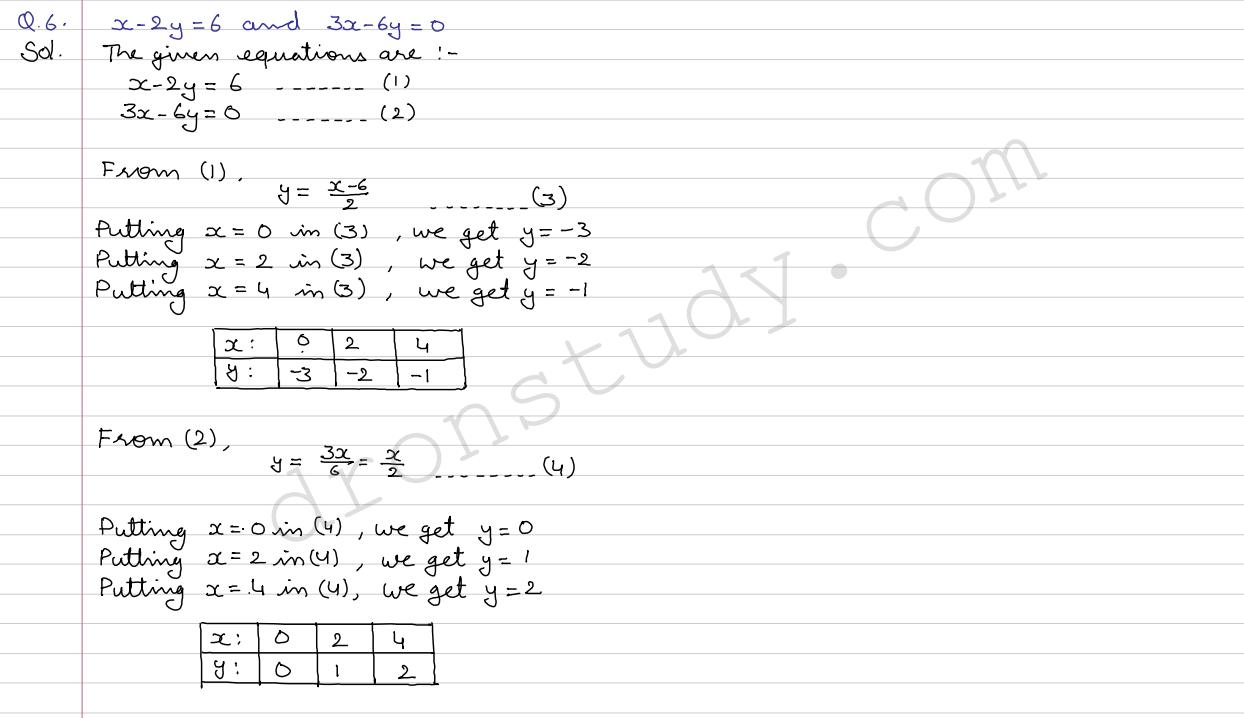 Q.6. x-2y=6 and 3x-6y=0
Sol. The given equations are :-
x-2y=6 ------- (1)
3x-6y=0 ------- (2)
From (1),
y= x-6/2 --------(3)
Putting x=0 in (3), we get y=-3
Putting x=2 in (3), we get y=-2
Putting x=4 in (3), we get y=-1
x: 0 2 4
y: -3 -2 -1
From (2),
y= 3x/6 = x/2 --------(4)
Putting x=0 in (4), we get y=0
Putting x=2 in (4), we get y=1
Putting x=4 in (4), we get y=2
x: 0 2 4
y: 0 1 2
dronstudy.com